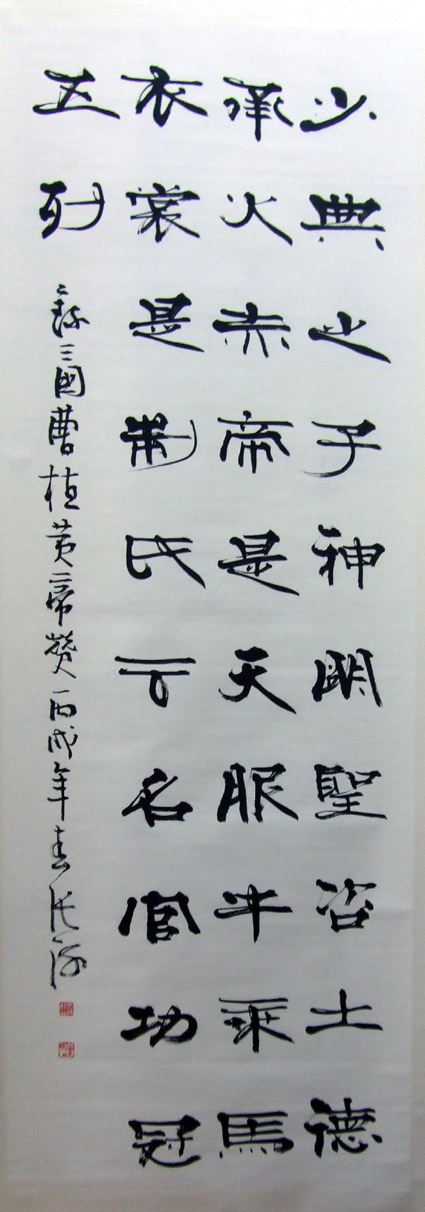 少典之子神明聖咨土德
承火赤帝是天服牛乘馬
衣裳是制氏云名官功冠
五列
錄三國曹植黄帝贊丙戌年春